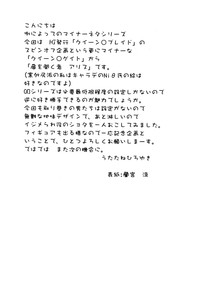 こんにちは
例によってのマイナーネタシリーズ
今回は HJ発行「クイーン○ブレイド」の
スピンオフ企画という更にマイナーな
「クイーン○ゲイト」から
「扉を開く者 アリス」です。
(案外居酒の私はキャラデのNi8氏の絵は
好きなのですよ)
QGシリーズは必要最低限程度の設定しかないので
逆に好き勝手できるのが魅力でしょうか。
今回も取り巻きの男たちは設定がないので
無難な地味デザインで、あと淋しいので
イジメられ役のショタを一人おこしてみました。
フィギュアも出る様なので一応記念企画と
いうことで、ひとつよろしくお願いしまーす。
ではでは また次の機会に。
うたたねひろゆき
表紙:優宮 淳